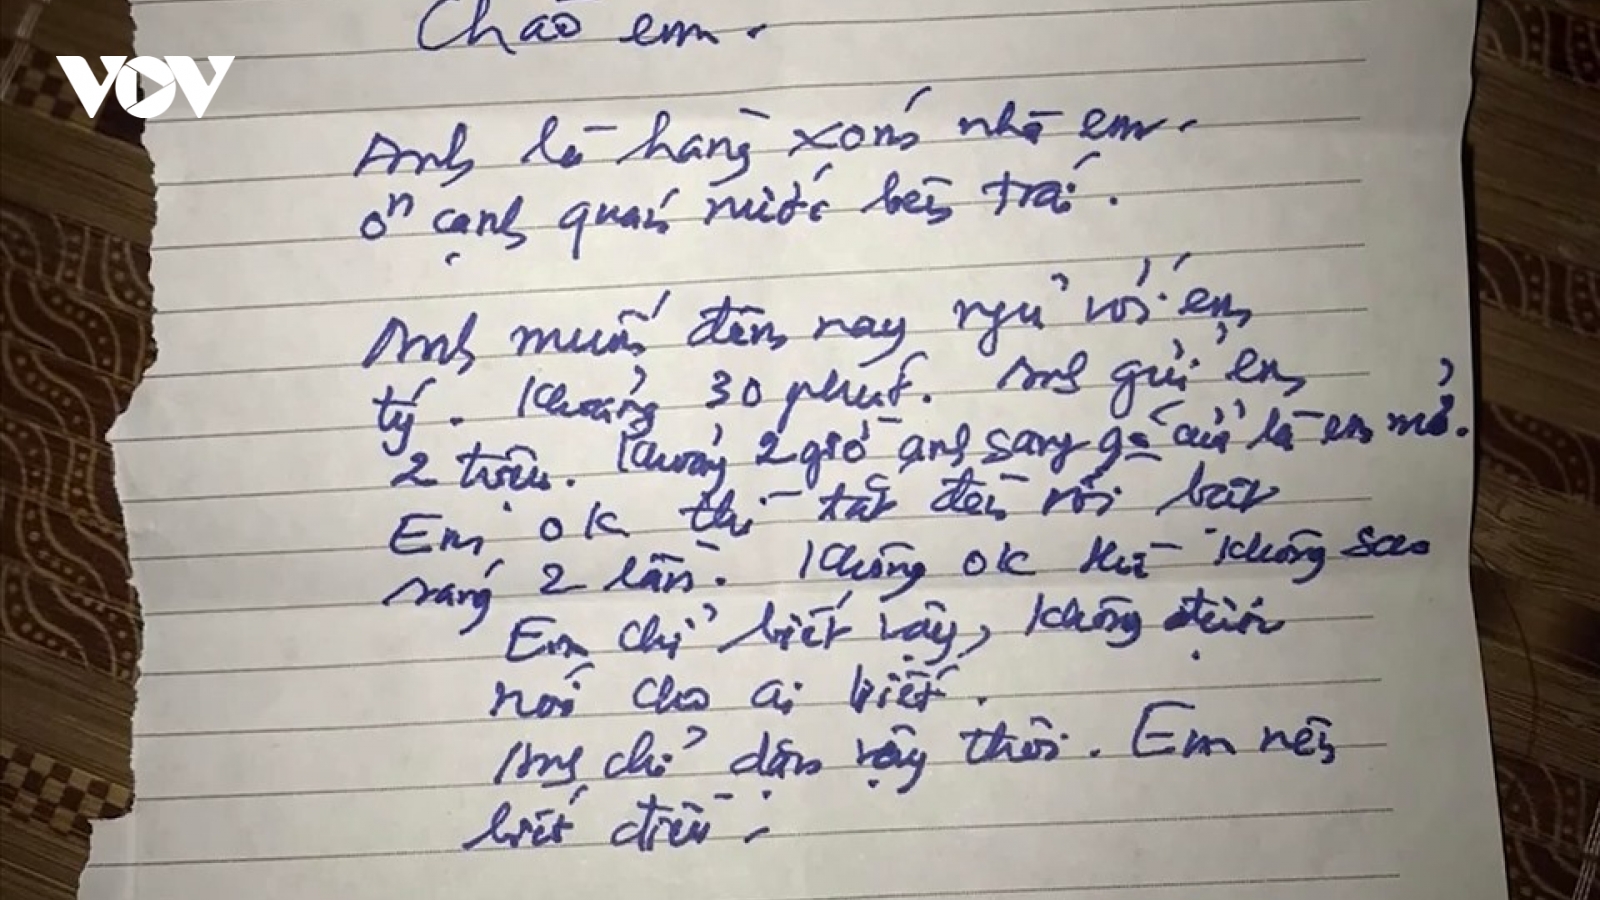 VOV
Chào em.
Anh là hàng xóm nhà em.
ở cạnh quán nước bên trái.
Anh muốn đêm nay ngủ với em
tý. Khoảng 30 phút. Anh gửi em
2 triệu. Khoảng 2 giờ anh sang gõ cửa là em mở.
Em ok thì tắt đèn rồi bật
sáng 2 lần. Không ok thì không sao
Em chỉ biết vậy, không được
nói cho ai biết.
Anh chỉ dặn vậy thôi. Em nên
biết điều.